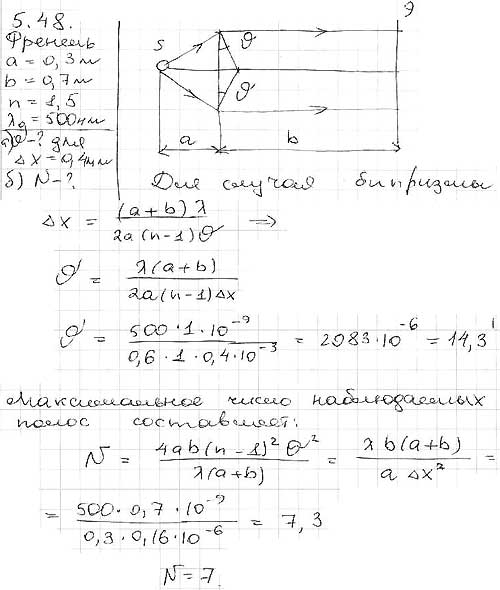 5.48.
Френель
a = 0,3 м
b = 0,7 м
n = 1,5
λ₀ = 500 нм
а) ϑ - ? для
Δx = 0,4 мм
б) N - ?
S
ϑ
ϑ
Э
a
b
Для случая бипризмы
Δx = (a+b)λ / 2a(n-1)ϑ ⇒
ϑ = λ(a+b) / 2a(n-1)Δx
ϑ = 500·1·10⁻⁹ / 0,6·1·0,4·10⁻³ = 2083·10⁻⁶ = 14,3'
Максимальное число наблюдаемых
полос составляет:
N = 4ab(n-1)²ϑ² / λ(a+b) = λb(a+b) / aΔx² =
= 500·0,7·10⁻⁹ / 0,3·0,16·10⁻⁶ = 7,3
N = 7.